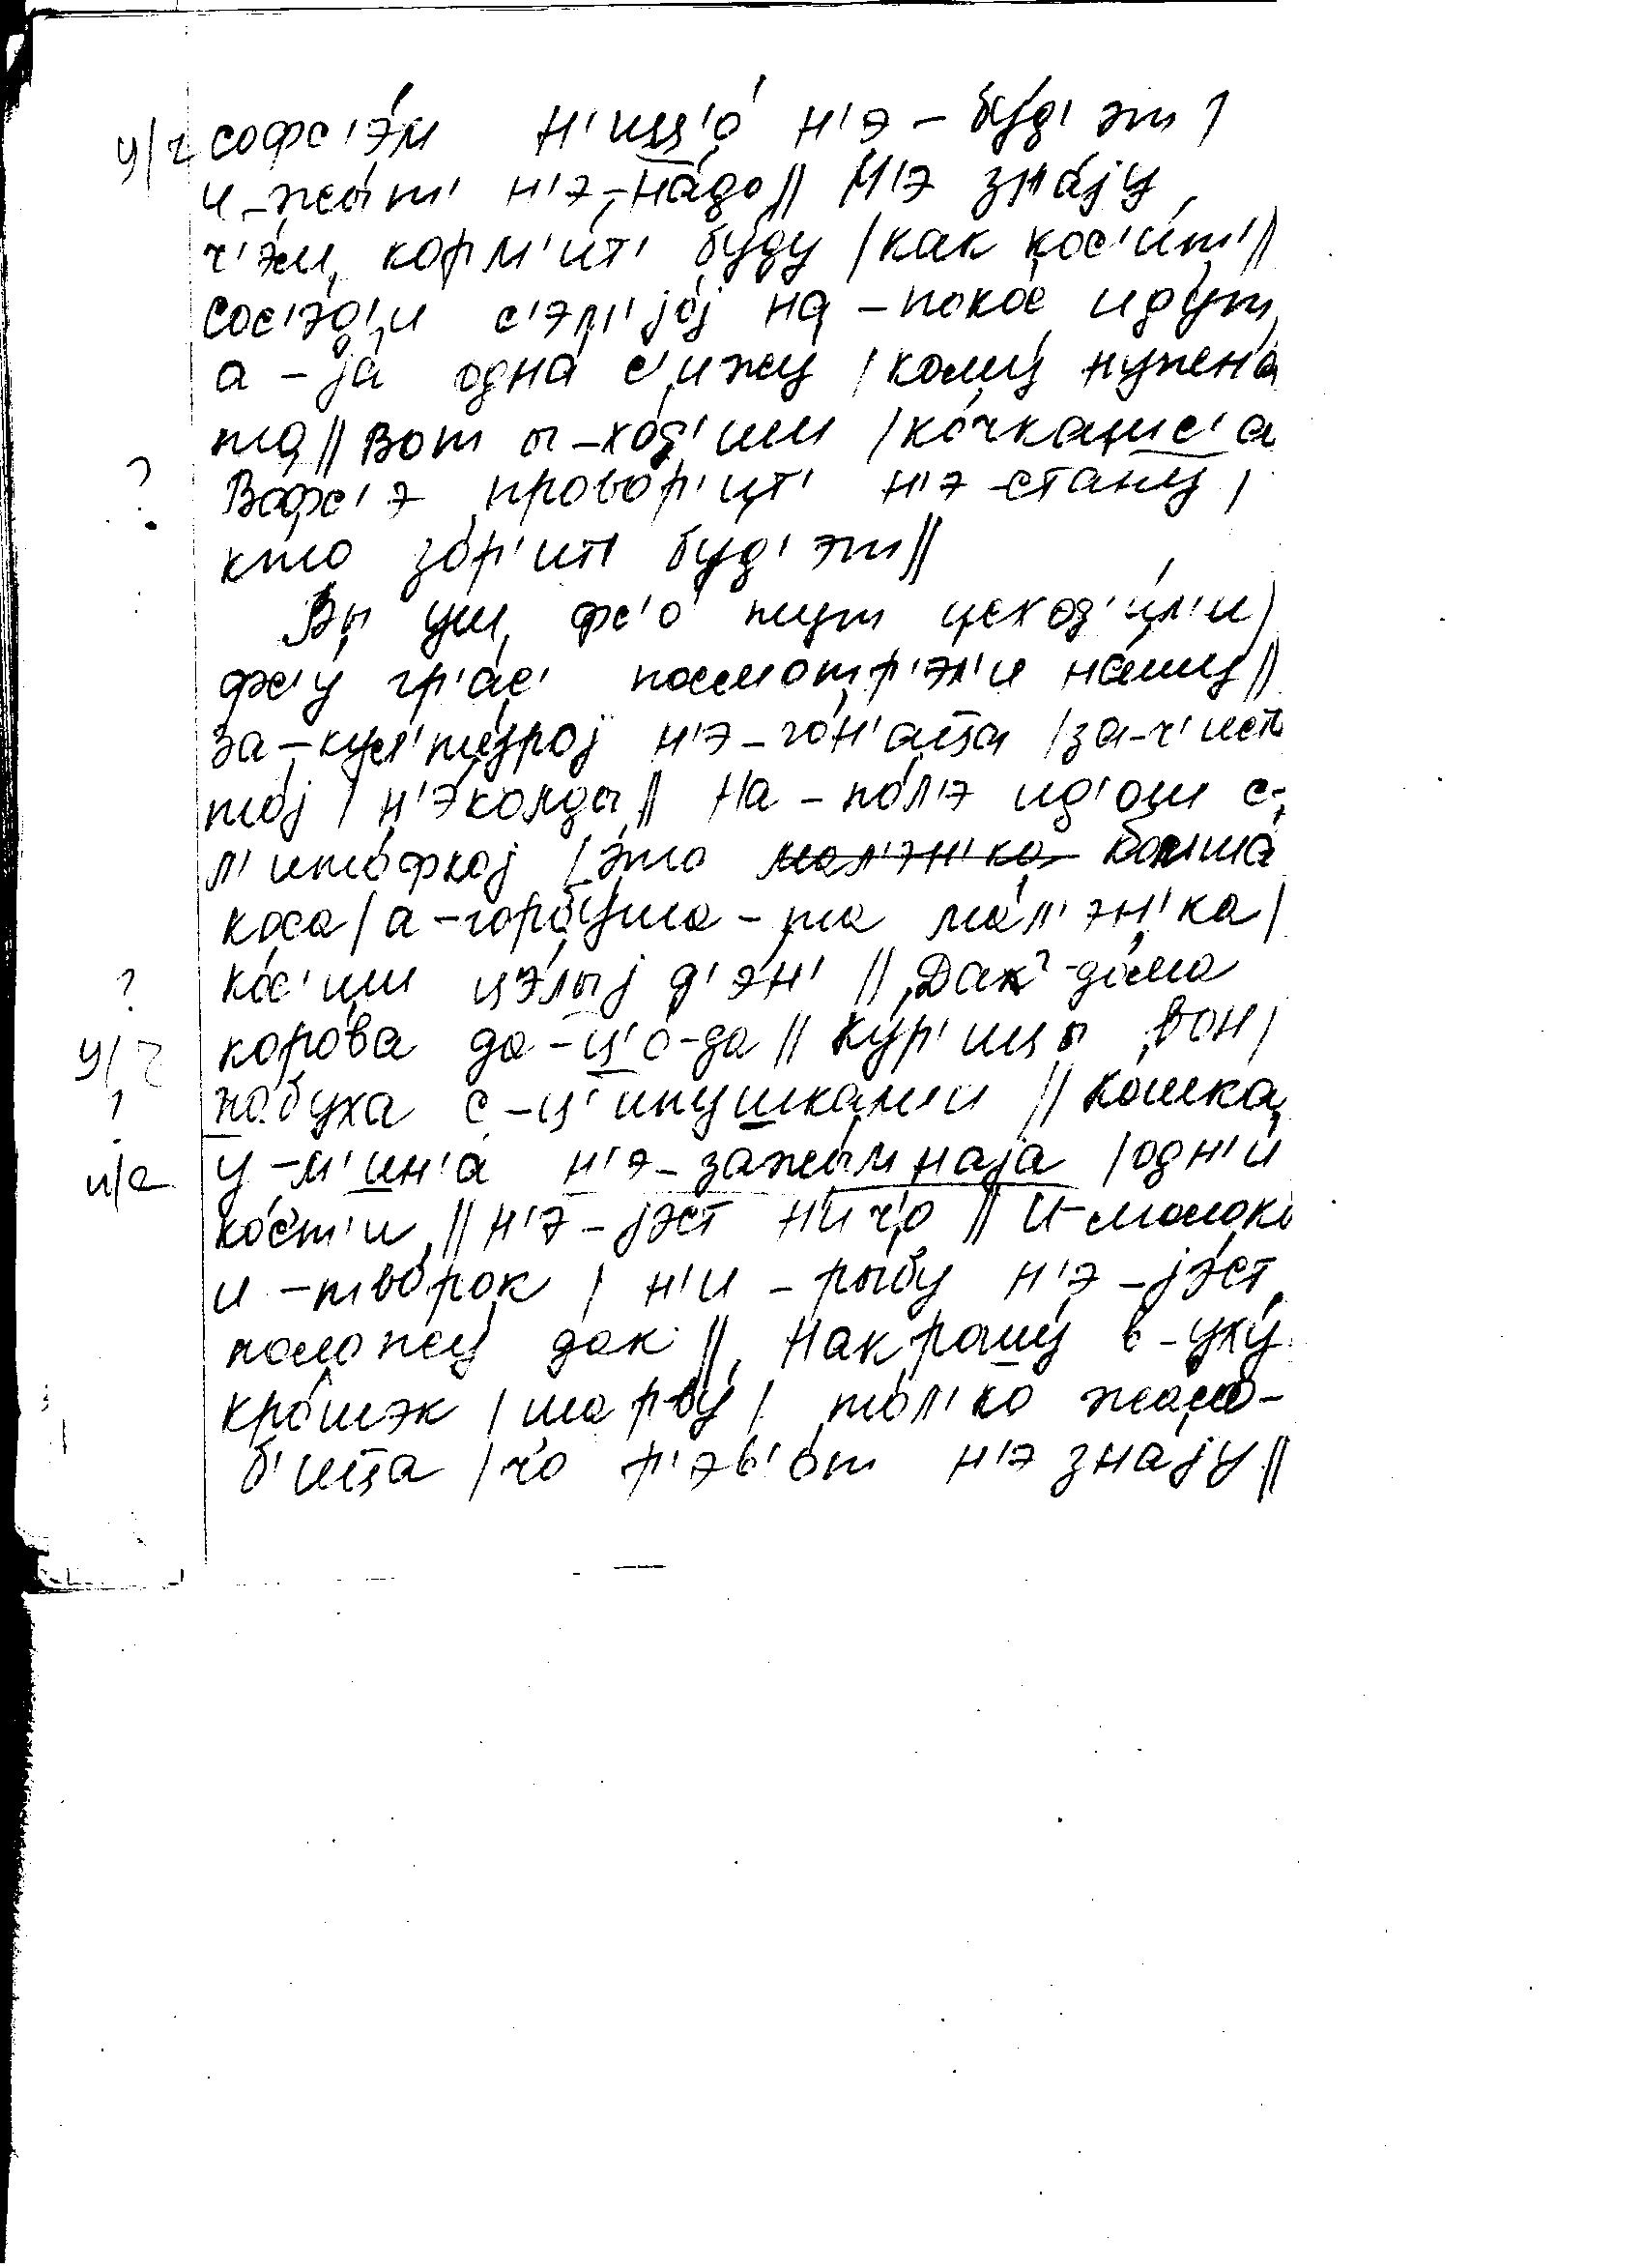 ц/ч софс'э́м н'иц'о́ н'э-бу́д'эт /
и-жы́т' н'э-на́до // Н'э зна́jу
ч'э́м корм'и́т' бу́ду / как кос'и́т' //
сос'э́д'и с'эм'jо́j на-поко́с иду́т
а-jа́ одна́ с'ижу́ / кому́ нужена́
та // Вот ы-хо́д'иш / ко́чкаш'с'а
Вофс'э провор'и́т' н'э-стану /
кто зо́р'ит' буд'эт //
Вы уш фс'о́ тут исход'и́л'и /
фс'у́ гр'а́с' посмотр'э́л'и на́шу //
За-кул'ту́роj н'э-го́н'аца / за-ч'исто
то́j / н'э́колды // На-по́л'э ид'о́ш с-
л'ито́фкоj / э́то ~~мал'эн'ка~~ бол'ша́
коса́ / а-горбу́ша-та ма́л'эн'ка /
ко́с'иш цэ́лыj д'э́н' // Дак-до́ма
коро́ва да-ц'о́-да // Ку́р'ицы вон /
? жабуха с-ц'ипу́шкам'и // Ко́шка
и/е у-м'ин'а́ н'э-зажы́мнаjа / одн'и́
ко́с'т'и // н'э-jэст нич'о́ // И-молоко́
и-тво́рок / н'и-ры́бу н'э-jэ́ст
положу́ дак // Накрошу́ в-уху́
кро́шэк / шарву́ / то́л'ко
б'ица / ч'о р'эв'о́т н'э зна́jу //